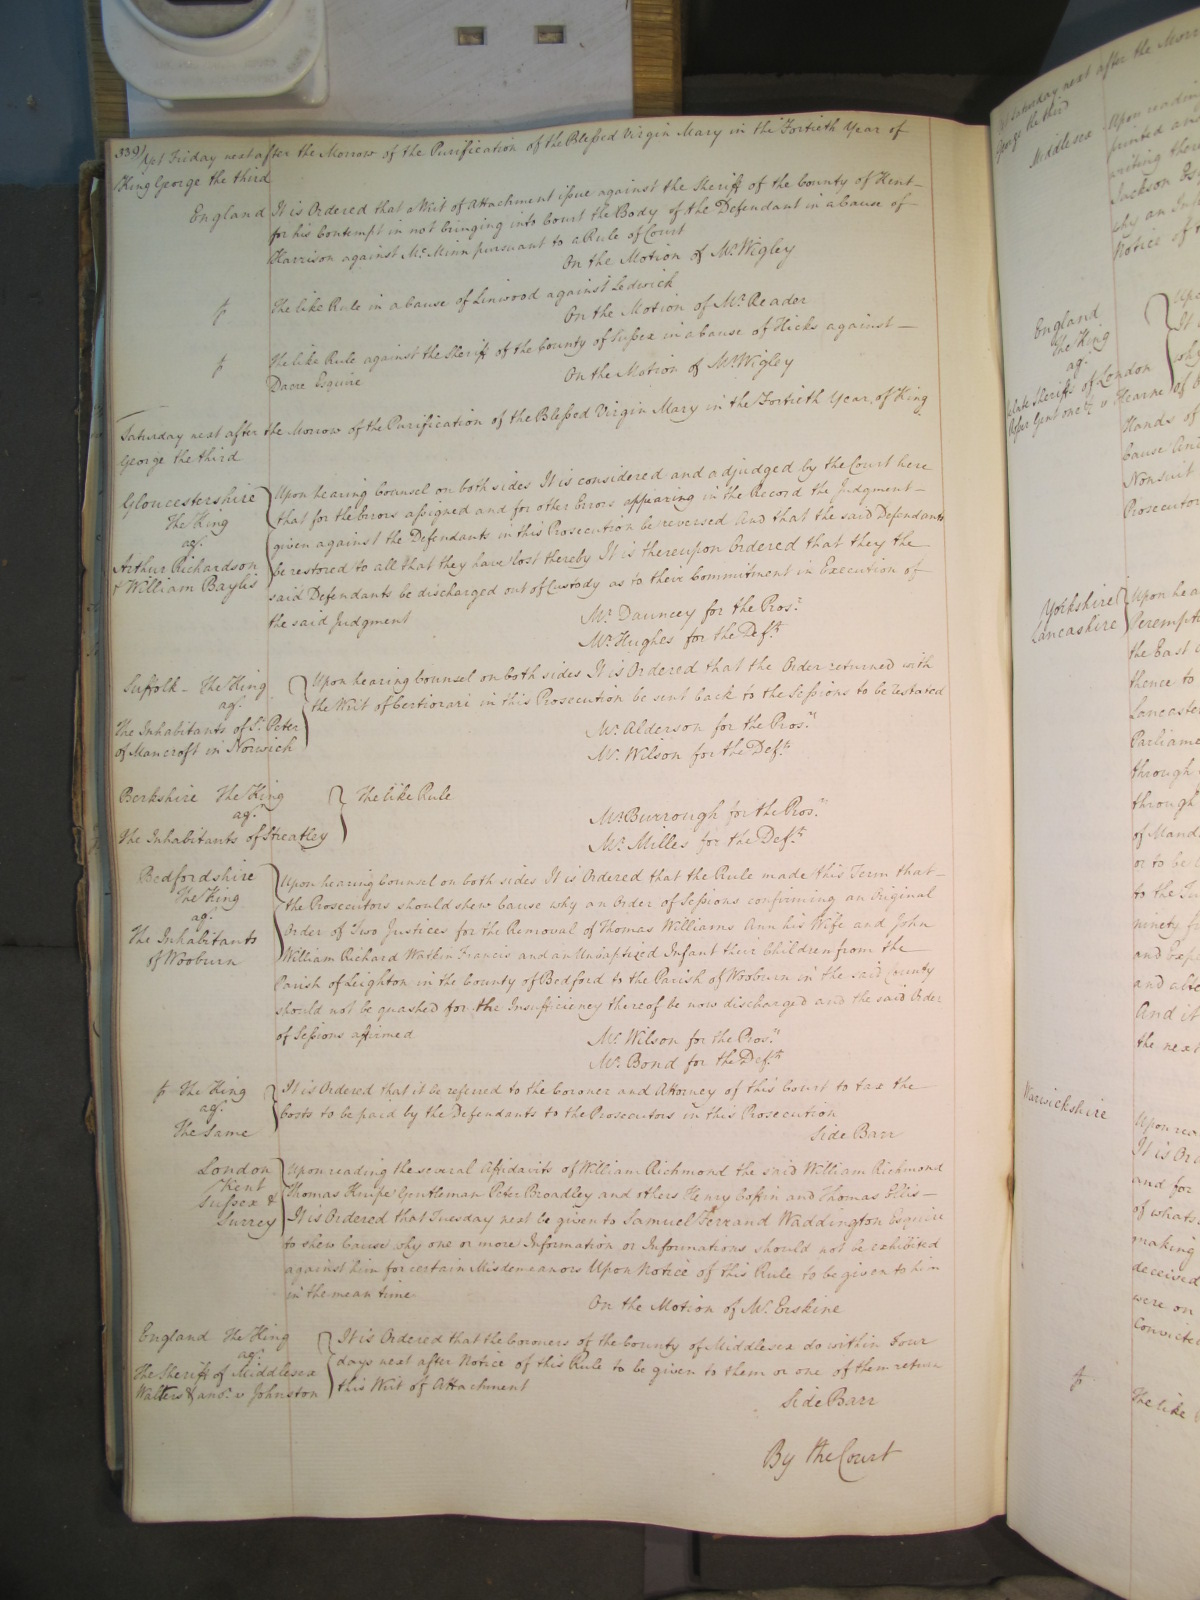 339/ Yet Friday next after the Morrow of the Purification of the Blessed Virgin Mary in the Fortieth Year of
King George the third
England It is Ordered that a Writ of Attachment issue against the Sheriff of the County of Kent
for his Contempt in not bringing into Court the Body of the Defendant in a Cause of
Harrison against Mc. Minn pursuant to a Rule of Court
On the Motion of Mr. Wigley
The like Rule in a Cause of Linwood against Ledwich
On the Motion of Mr. Reader
The like Rule against the Sheriff of the County of Sussex in a Cause of Hicks against
Dacre Esquire
On the Motion of Mr. Wigley
Saturday next after the Morrow of the Purification of the Blessed Virgin Mary in the Fortieth Year of King
George the third
Gloucestershire
The King
agt.
Arthur Richardson
& William Baylis
Upon hearing Counsel on both sides It is considered and adjudged by the Court here
that for the Errors assigned and for other Errors appearing in the Record the Judgment
given against the Defendants in this Prosecution be reversed And that the said Defendants
be restored to all that they have lost thereby It is thereupon Ordered that they the
said Defendants be discharged out of Custody as to their Commitment in Execution of
the said Judgment
Mr. Dauncey for the Pros.rs
Mr. Hughes for the Def.ts
Suffolk - The King
agt.
The Inhabitants of St. Peter
of Mancroft in Norwich
Upon hearing Counsel on both sides It is Ordered that the Order returned with
the Writ of Certiorari in this Prosecution be sent back to the Sessions to be restated
Mr. Alderson for the Pros.rs
Mr. Wilson for the Def.ts
Berkshire The King
agt.
The Inhabitants of Streatley
The like Rule
Mr. Burrough for the Pros.rs
Mr. Milles for the Def.ts
Bedfordshire
The King
agt.
The Inhabitants
of Wooburn
Upon hearing Counsel on both sides It is Ordered that the Rule made this Term that
the Prosecutors should shew Cause why an Order of Sessions confirming an Original
Order of Two Justices for the Removal of Thomas Williams Ann his Wife and John
William Richard Watkin Francis and an Unbaptized Infant their Children from the
Parish of Leighton in the County of Bedford to the Parish of Wooburn in the said County
should not be quashed for the Insufficiency thereof be now discharged and the said Order
of Sessions affirmed
Mr. Wilson for the Pros.rs
Mr. Bond for the Def.ts
The King
agt.
The Same
It is Ordered that it be referred to the Coroner and Attorney of this Court to tax the
Costs to be paid by the Defendants to the Prosecutors in this Prosecution
Side Barr
London
Kent
Sussex &
Surrey
Upon reading the several Affidavits of William Richmond the said William Richmond
Thomas Knipe Gentleman Peter Broadley and others Henry Coffin and Thomas Ellis
It is Ordered that Tuesday next be given to Samuel Ferrand Waddington Esquire
to shew Cause why one or more Information or Informations should not be exhibited
against him for certain Misdemeanors Upon Notice of this Rule to be given to him
in the mean time
On the Motion of Mr. Erskine
England The King
agt.
The Sheriff of Middlesex
Walters & anor. v Johnston
It is Ordered that the Coroners of the County of Middlesex do within Four
days next after Notice of this Rule to be given to them or one of them return
this Writ of Attachment
Side Barr
By the Court
Saturday next after the Morr
George the third
Middlesex
Upon readin
writing
Jackson Esq
why an In
Notice of
England
The King
agt.
late Sheriffs of London
Hearne
Hands of
Cause And
Nonsuit
Prosecutor
Yorkshire
Lancashire
Upon hea
Perempt
the East
thence to
Lancaster
Parliame
through
through
of Mand
or to be
to the
ninety
and Expe
and
And it
the next
Warwickshire
Upon rea
It is Ord
and for
of whats
making
deceived
were on
Convicted
The like